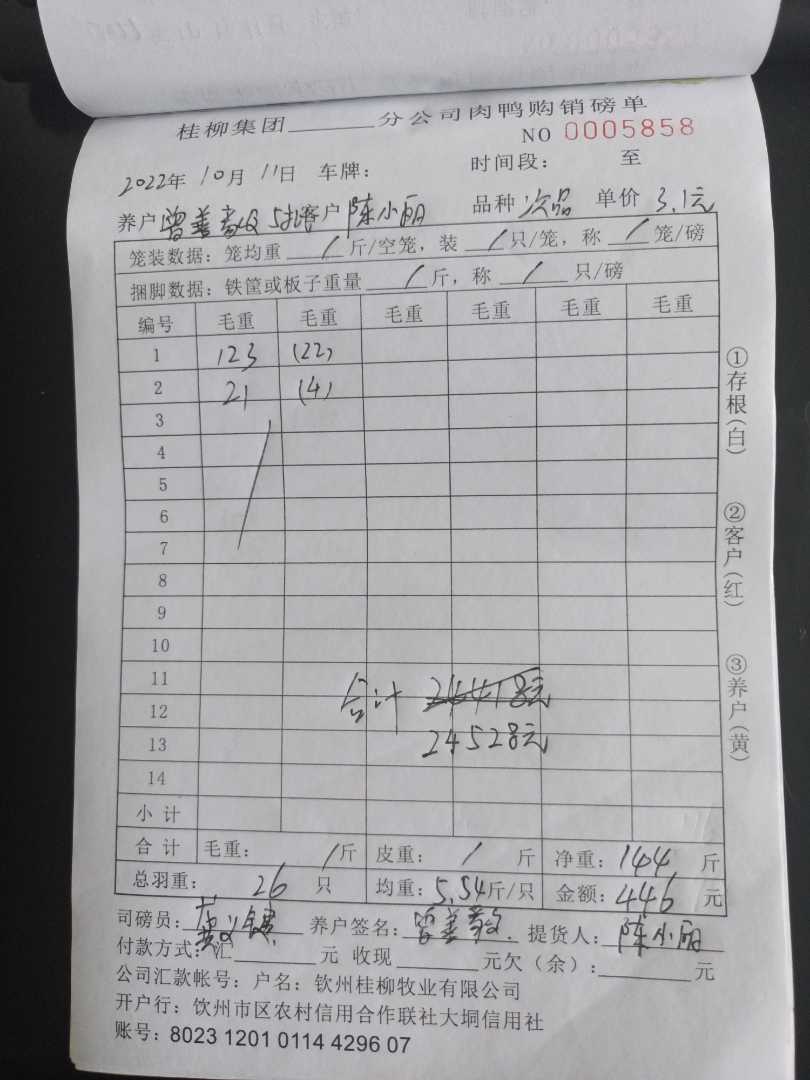 桂柳集团______分公司肉鸭购销磅单
NO 0005858
2022年 10月 11日 车牌： 时间段： 至
养户 曾善 客户 陈小丽 品种 次品 单价 3.1元
笼装数据：笼均重 / 斤/空笼，装 / 只/笼，称 / 笼/磅
捆脚数据：铁筐或板子重量 / 斤，称 / 只/磅
编号 毛重 毛重 毛重 毛重 毛重 毛重
1 123 (22)
2 21 (4)
3
4
5
6
7
8
9
10
11
12
13
14
合计 24418元
24528元
小计
合计 毛重： / 斤 皮重： / 斤 净重：144 斤
总羽重： 26 只 均重：5.54斤/只 金额：446 元
司磅员： 养户签名：曾善 提货人：陈小丽
付款方式：汇______元 收现______元欠（余）：______元
公司汇款帐号：户名：钦州桂柳牧业有限公司
开户行：饮州市区农村信用合作联社大垌信用社
账号：8023 1201 0114 4296 07
①存根(白)
②客户(红)
③养户(黄)